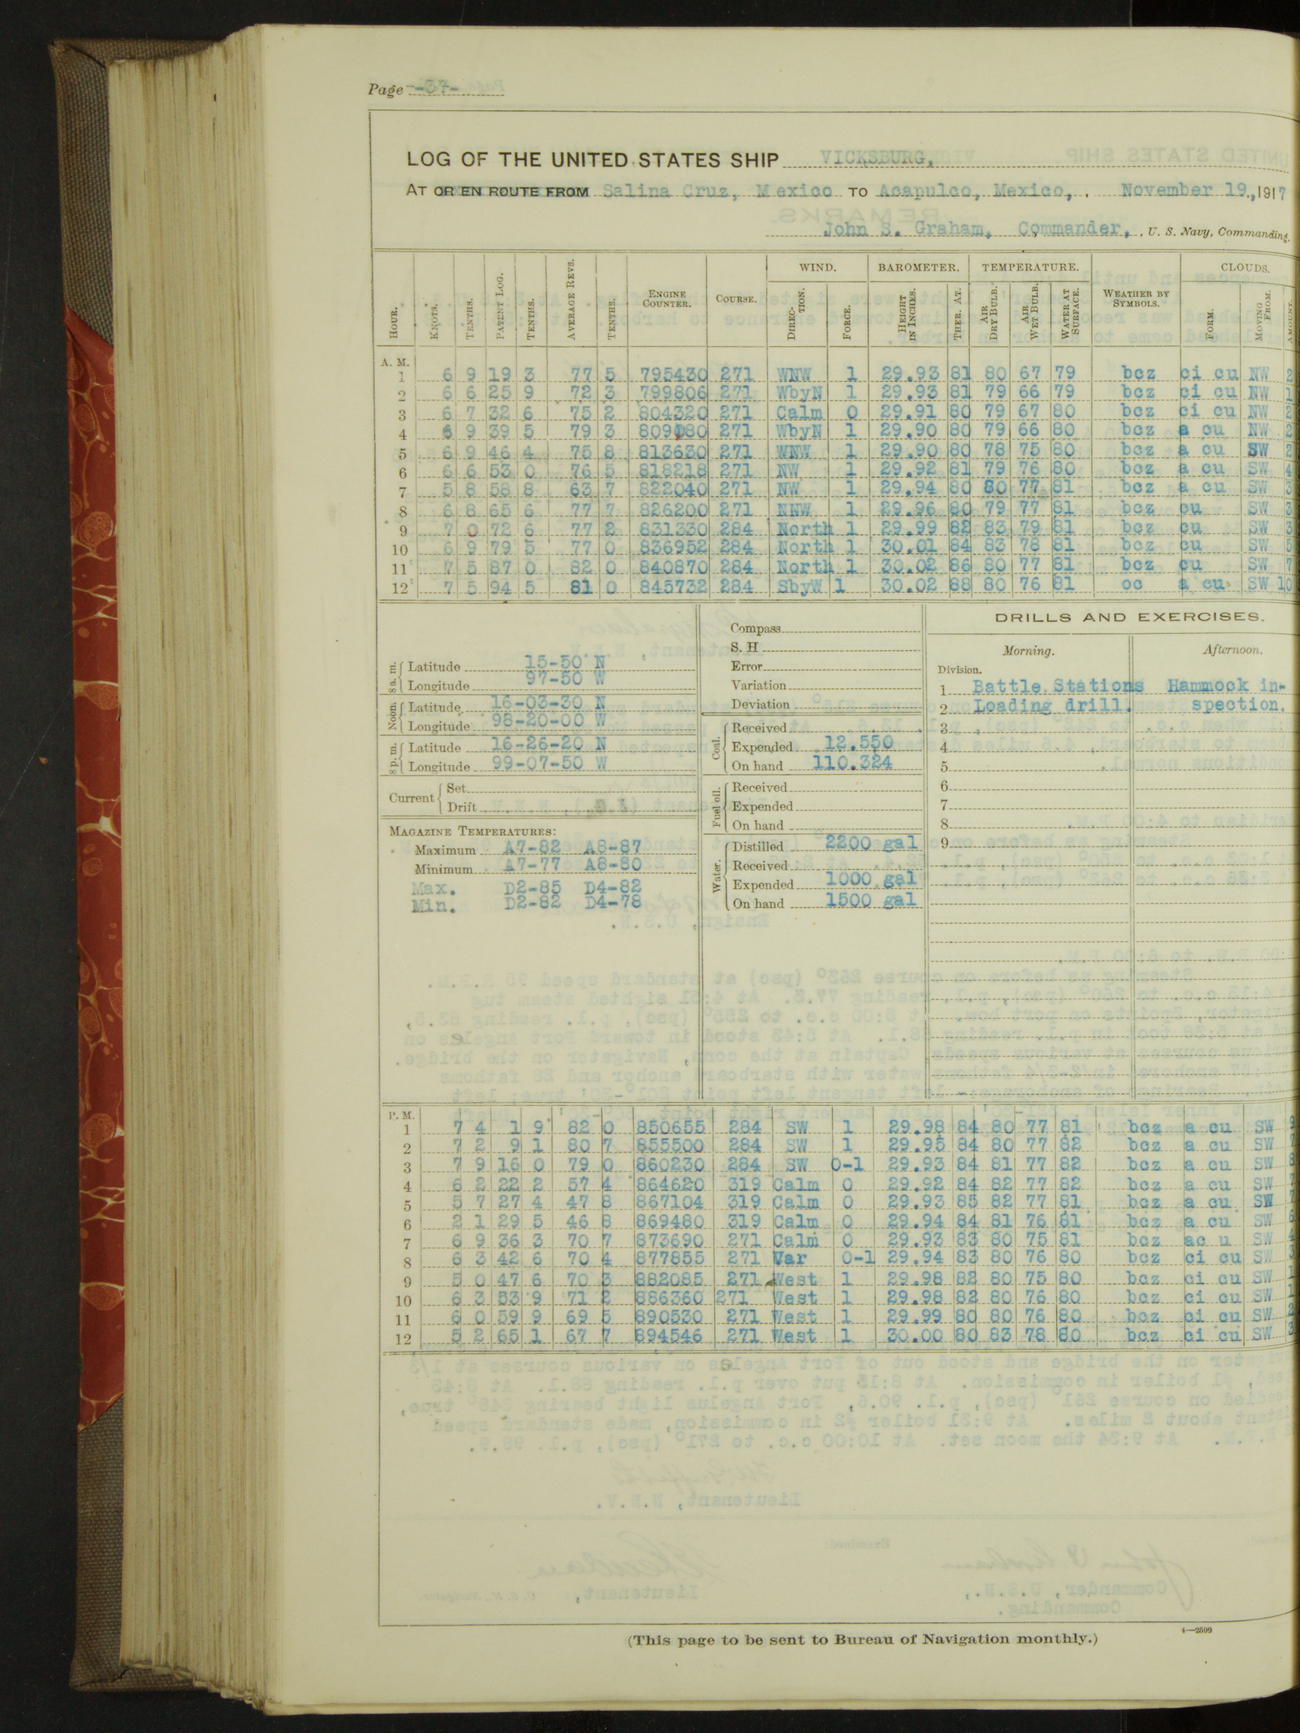 Page -37-
LOG OF THE UNITED STATES SHIP VICKSBURG,
AT OR EN ROUTE FROM Salina Cruz, Mexico TO Acapulco, Mexico, November 19, 1917
John S. Graham, Commander, U. S. Navy, Commanding.
HOUR. KNOTS. TENTHS. PATENT LOG. TENTHS. AVERAGE REVS. TENTHS. ENGINE COUNTER. COURSE. WIND. DIRECTION. FORCE. BAROMETER. HEIGHT IN INCHES. THER. AT. TEMPERATURE. AIR DRY BULB. AIR WET BULB. WATER AT SURFACE. WEATHER BY SYMBOLS. CLOUDS. FORM. MOVING FROM. AMOUNT
A. M.
1 6 9 19 3 77 5 795430 271 WNW 1 29.93 81 80 67 79 bcz ci cu NW 2
2 6 6 25 9 72 3 799806 271 WbyN 1 29.93 81 79 66 79 bcz ci cu NW 1
3 6 7 32 6 75 2 804320 271 Calm 0 29.91 80 79 67 80 bcz ci cu NW 2
4 6 9 39 5 79 3 809080 271 WbyN 1 29.90 80 79 66 80 bcz a cu NW 2
5 6 9 46 4 75 8 813630 271 WNW 1 29.90 80 78 75 80 bcz a cu SW 2
6 6 6 53 0 76 5 818218 271 NW 1 29.92 81 79 76 80 bcz a cu SW 4
7 5 8 58 8 63 7 822040 271 NW 1 29.94 80 80 77 81 bcz a cu SW 3
8 6 8 65 6 77 7 826200 271 NNW 1 29.96 80 79 77 81 bcz cu SW 3
9 7 0 72 6 77 2 831330 284 North 1 29.99 82 83 79 81 bcz cu SW 3
10 6 9 79 5 77 0 836952 284 North 1 30.01 84 83 78 81 bcz cu SW
11 7 5 87 0 82 0 840870 284 North 1 30.02 86 80 77 81 bcz cu SW 7
12 7 5 94 5 81 0 845732 284 SbyW 1 30.02 88 80 76 81 oc a cu SW 10
8 a.m. Latitude 15-50 N
Longitude 97-50 W
Noon. Latitude 16-03-30 N
Longitude 98-20-00 W
8 p.m. Latitude 16-26-20 N
Longitude 99-07-50 W
Current Set
Drift
MAGAZINE TEMPERATURES:
Maximum A7-82 A8-87
Minimum A7-77 A8-80
Max. D2-85 D4-82
Min. D2-82 D4-78
Compass
S. H
Error
Variation
Deviation
Coal. Received
Expended 12.550
On hand 110.324
Fuel oil. Received
Expended
On hand
Water. Distilled 2200 gal
Received
Expended 1000 gal
On hand 1500 gal
DRILLS AND EXERCISES.
Morning. Afternoon.
Division.
1 Battle Stations Hammock in-
2 Loading drill. spection.
3
4
5
6
7
8
9
P. M.
1 7 4 1 9 82 0 850655 284 SW 1 29.98 84 80 77 81 bcz a cu SW 9
2 7 2 9 1 80 7 855500 284 SW 1 29.95 84 80 77 82 bcz a cu SW 7
3 7 9 16 0 79 0 860230 284 SW 0-1 29.93 84 81 77 82 bcz a cu SW 8
4 6 2 22 2 57 4 864620 319 Calm 0 29.92 84 82 77 82 bcz a cu SW 7
5 5 7 27 4 47 8 867104 319 Calm 0 29.93 85 82 77 81 bcz a cu SW 7
6 2 1 29 5 46 8 869480 319 Calm 0 29.94 84 81 76 81 bcz a cu SW 6
7 6 9 36 3 70 7 873690 271 Calm 0 29.93 83 80 75 81 bcz ac u SW 4
8 6 3 42 6 70 4 877855 271 Var 0-1 29.94 83 80 76 80 bcz ci cu SW 3
9 5 0 47 6 70 3 882085 271 West 1 29.98 82 80 75 80 bcz ci cu SW 1
10 6 3 53 9 71 2 886360 271 West 1 29.98 82 80 76 80 bcz ci cu SW 1
11 6 0 59 9 69 5 890530 271 West 1 29.99 80 80 76 80 bcz ci cu SW 2
12 5 2 65 1 67 7 894546 271 West 1 30.00 80 83 78 80 bcz ci cu SW 3
(This page to be sent to Bureau of Navigation monthly.)
4—2599